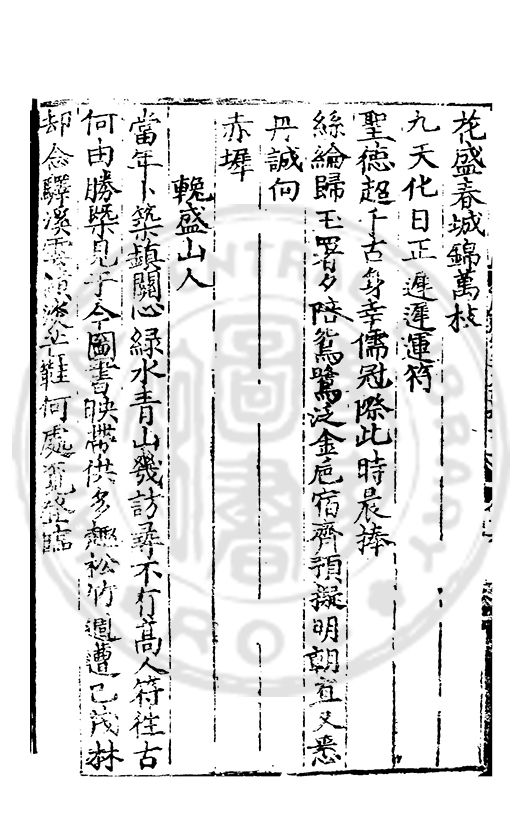 花盛春城錦萬枝
九天化日正遲遲運符
聖德超千古身幸儒冠際此時晨捧
絲綸歸玉署夕陪鴛鷺泛金巵宿齋預擬明朝宣又悉
丹誠向
赤墀
輓盛山人
當年卜築鎮關心綠水青山幾訪尋不有高人符往古
何由勝槩見于今圖書映帶供多趣松竹週遭已茂林
却念驛溪雲 淡 鞋何處覓登臨
CENTRAL LIBRARY
圖書